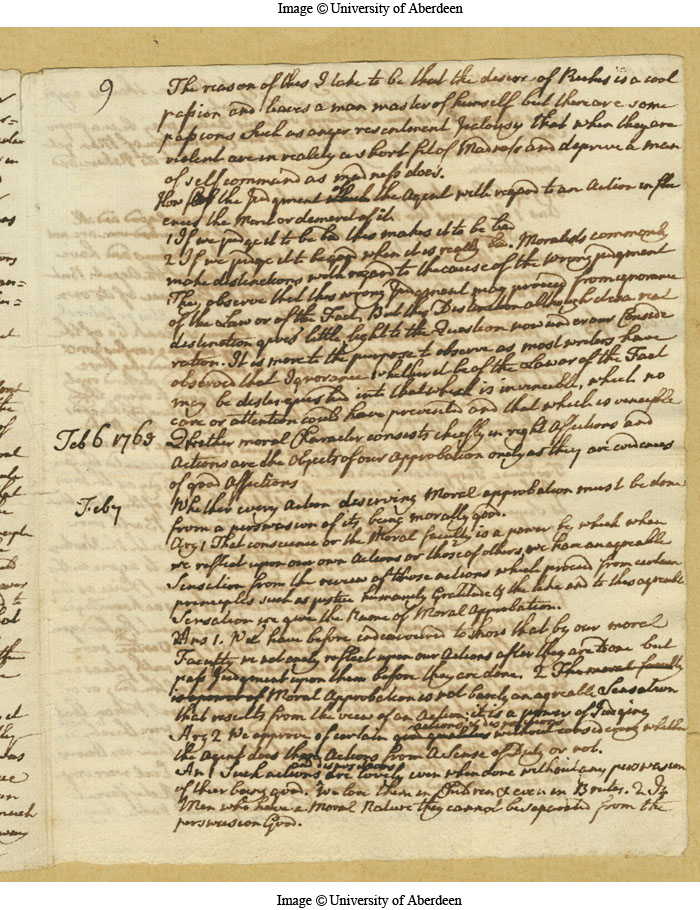 Image © University of Aberdeen
9
The reason of this I take to be that the desire of Riches is a cool
passion and leaves a man master of himself but there are some
passions Such as anger resentment Jealousy that when they are
violent are in reality a short fit of Madness and deprive a man
of self command as madness does.
How the Judgment the Agent with regard to an Action influ
ences the Merit or demerit of it.
1 If we judge it to be bad this makes it to be bad
2 If we judge it to be good when it is really bad. Moralists commonly
make distinctions with regard to the cause of the wrong judgment
They observe that this wrong Judgment may proceed from ignorance
of the Law or of the Fact, But this Distinction although it be a real
distinction gives little light to the Question now under our Conside
ration. It is more to the purpose to observe as most writers have
observed that Ignorance whether it be of the Law or of the Fact
may be distinguished into that which is invincible, which no
care or attention could have prevented and that which is vincible
Feb 6 1765 Whether moral Character consists chiefly in right Affections and
Actions are the Objects of our Approbation only as they are evidences
of good Affections
Feb 7 Whether every Action deserving Moral approbation must be done
from a perswasion of its being morally good.
Arg 1 That conscience or the Moral faculty is a power by which when
we reflect upon our own Actions or those of others, we have an agreable
Sensation from the review of those actions which proceed from certain
principles such as justice humanity Gratitude & the like and to this agreable
Sensation we give the Name of Moral Approbation.
Ans 1. We have before endeavoured to show that by our moral
Faculty we not only reflect upon our Actions after they are Done but
pass Judgment upon them before they are done. 2 The moral faculty
is a power of Moral Approbation is not barely an agreable Sensation
that results from the view of an Action; it is a power of Judging
Arg 2 We approve of certain without considering whether
the Agent does those Actions from a Sense of Duty or not.
An 1 Such actions are lovely even when done without any perswasion
of their being good. We love them in Children & even in Brutes. 2 In
Men who have a Moral Nature they cannot be seperated from the
perswasion Good.
Image © University of Aberdeen